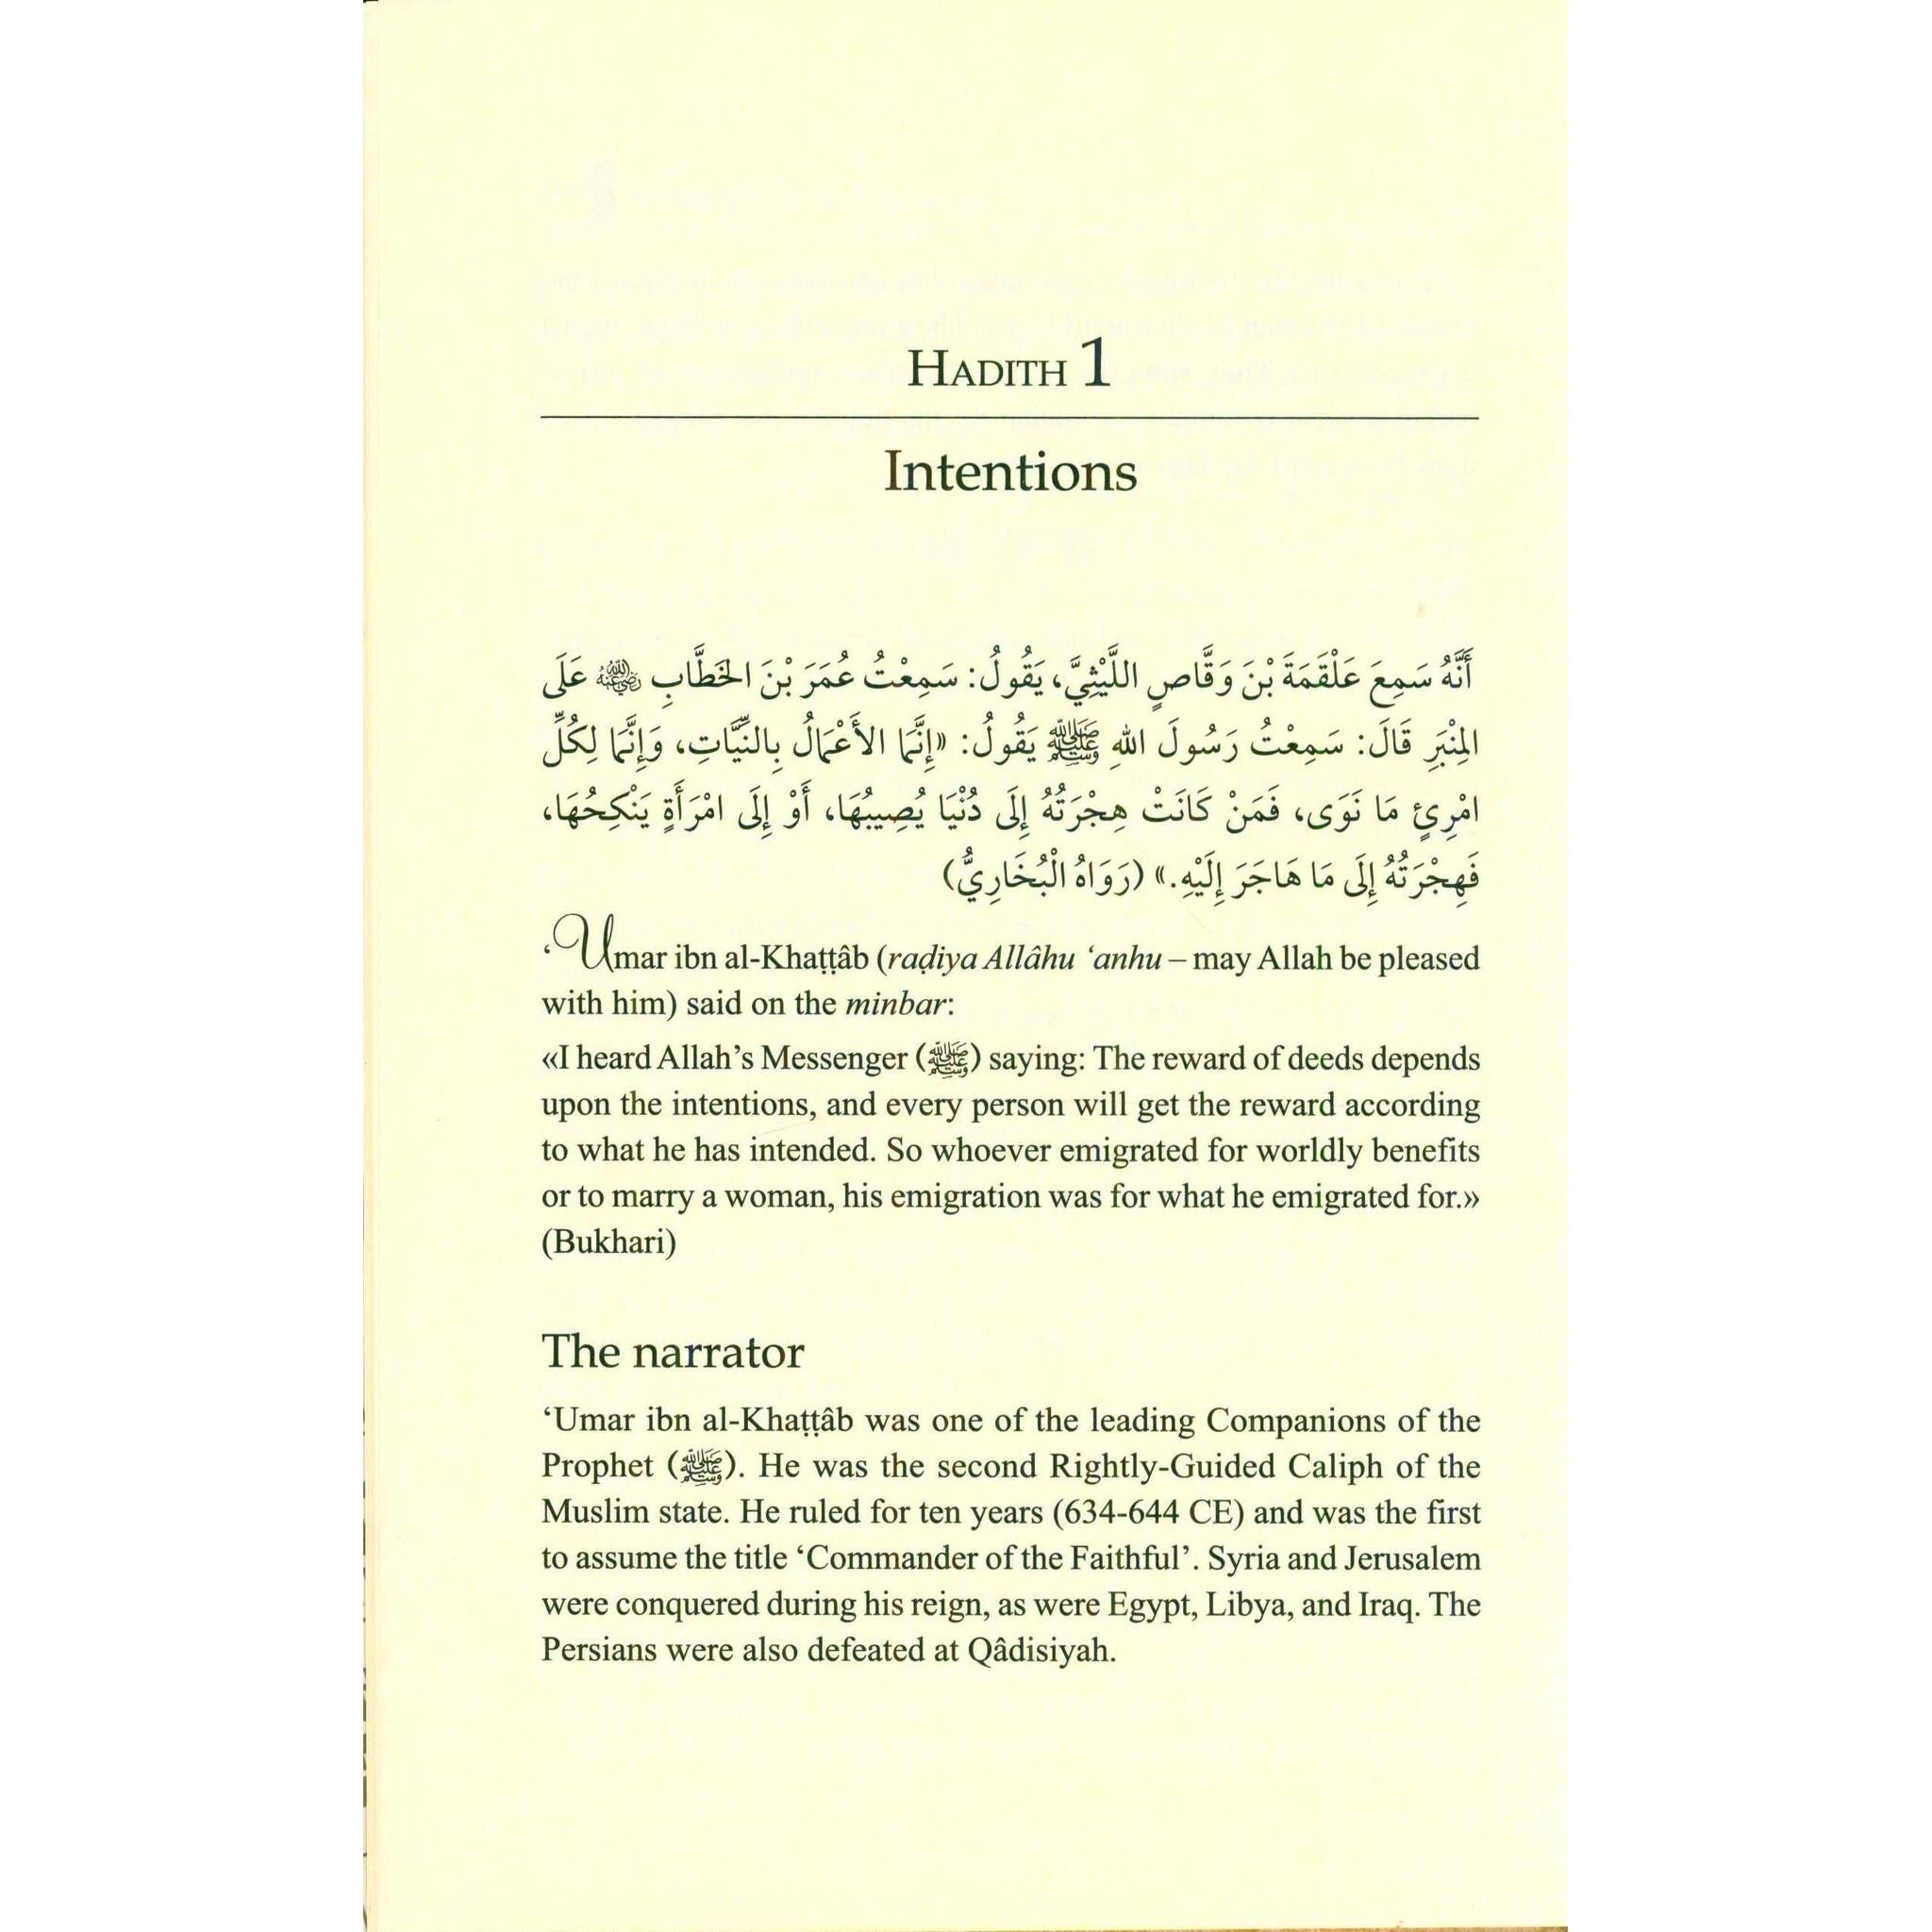 HADITH 1
Intentions
أَنَّهُ سَمِعَ عَلْقَمَةَ بْنَ وَقَّاصٍ اللَّيْثِيَّ، يَقُولُ: سَمِعْتُ عُمَرَ بْنَ الخَطَّابِ رضي الله عنه عَلَى
المِنْبَرِ قَالَ: سَمِعْتُ رَسُولَ اللهِ ﷺ يَقُولُ: «إِنَّمَا الأَعْمَالُ بِالنِّيَّاتِ، وَإِنَّمَا لِكُلِّ
امْرِئٍ مَا نَوَى، فَمَنْ كَانَتْ هِجْرَتُهُ إِلَى دُنْيَا يُصِيبُهَا، أَوْ إِلَى امْرَأَةٍ يَنْكِحُهَا،
فَهِجْرَتُهُ إِلَى مَا هَاجَرَ إِلَيْهِ.» (رَوَاهُ الْبُخَارِيُّ)
‘Umar ibn al-Khaṭṭâb (raḍiya Allâhu ‘anhu – may Allah be pleased
with him) said on the minbar:
«I heard Allah’s Messenger (ﷺ) saying: The reward of deeds depends
upon the intentions, and every person will get the reward according
to what he has intended. So whoever emigrated for worldly benefits
or to marry a woman, his emigration was for what he emigrated for.»
(Bukhari)
The narrator
‘Umar ibn al-Khaṭṭâb was one of the leading Companions of the
Prophet (ﷺ). He was the second Rightly-Guided Caliph of the
Muslim state. He ruled for ten years (634-644 CE) and was the first
to assume the title ‘Commander of the Faithful’. Syria and Jerusalem
were conquered during his reign, as were Egypt, Libya, and Iraq. The
Persians were also defeated at Qâdisiyah.